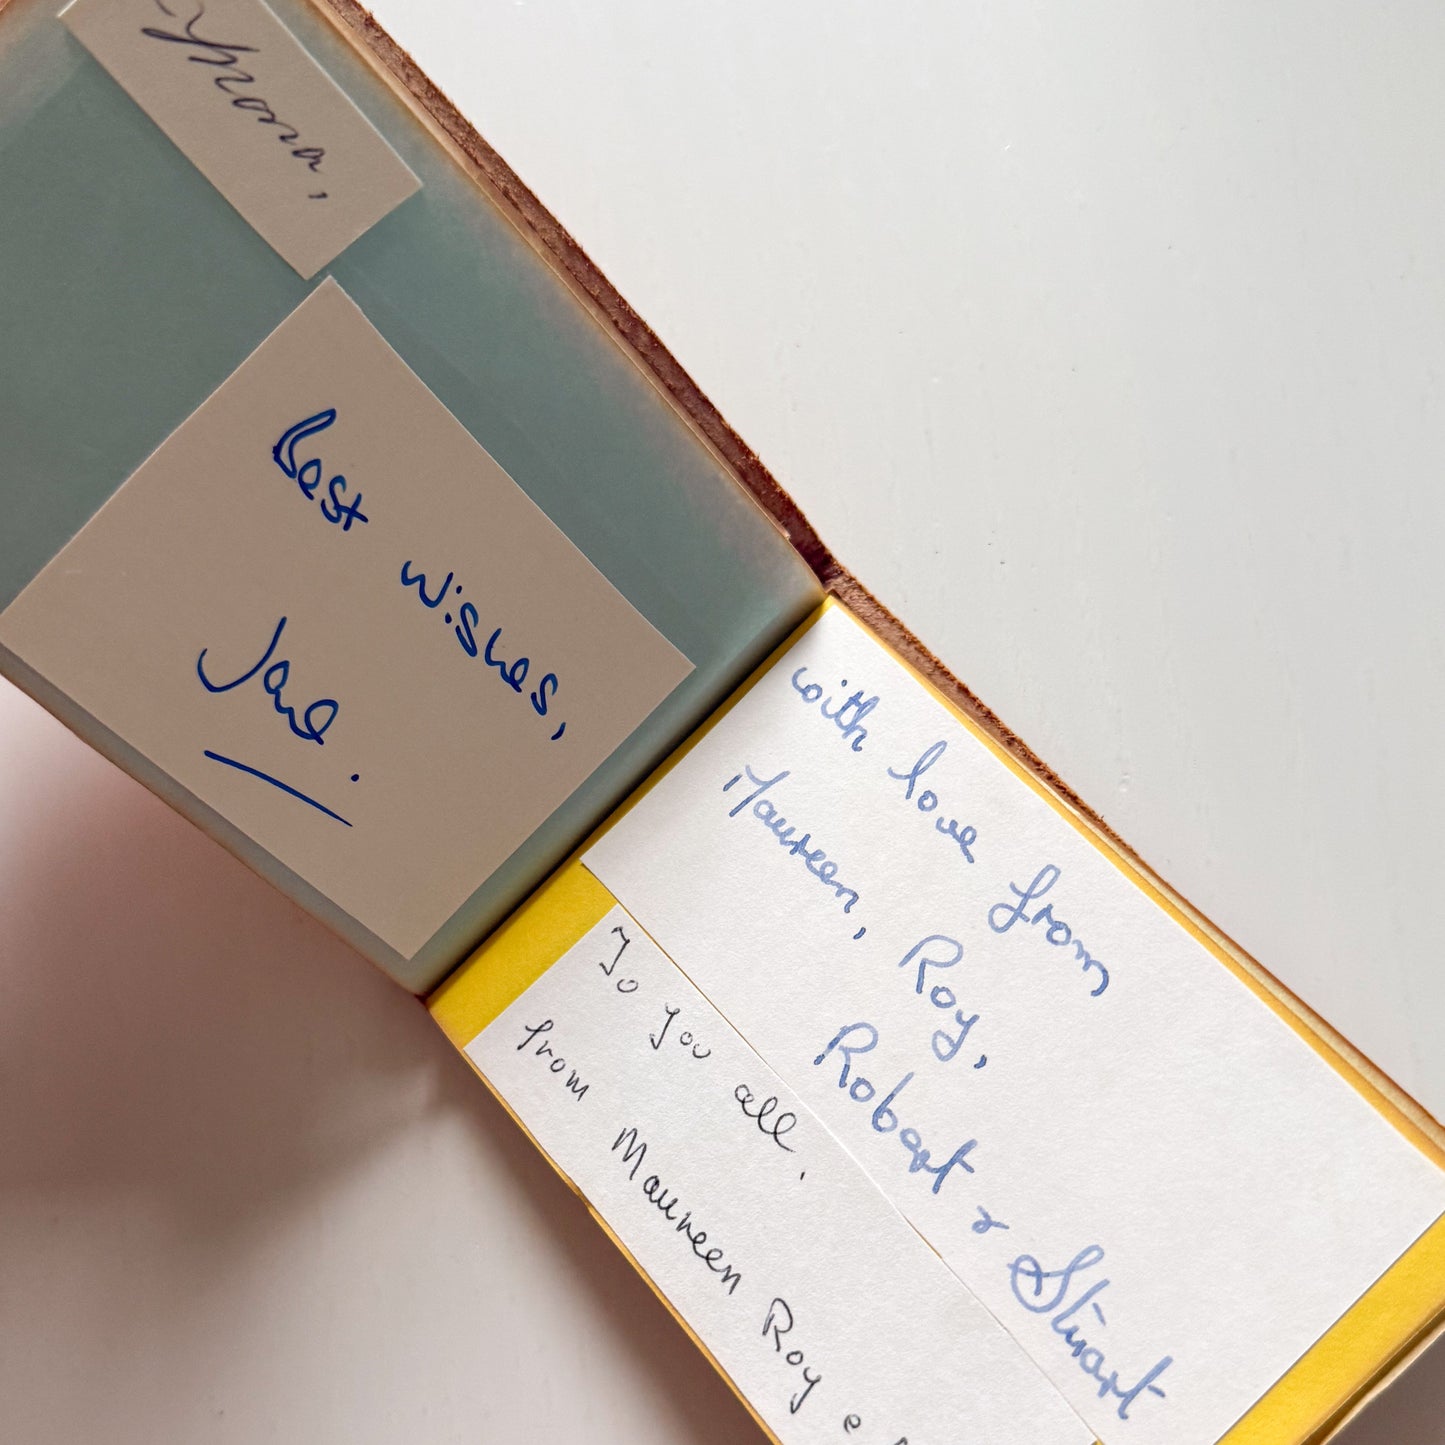 Best wishes,
Jane.
with love from
Maureen, Roy,
Robert & Stuart
To you all.
from Maureen Roy